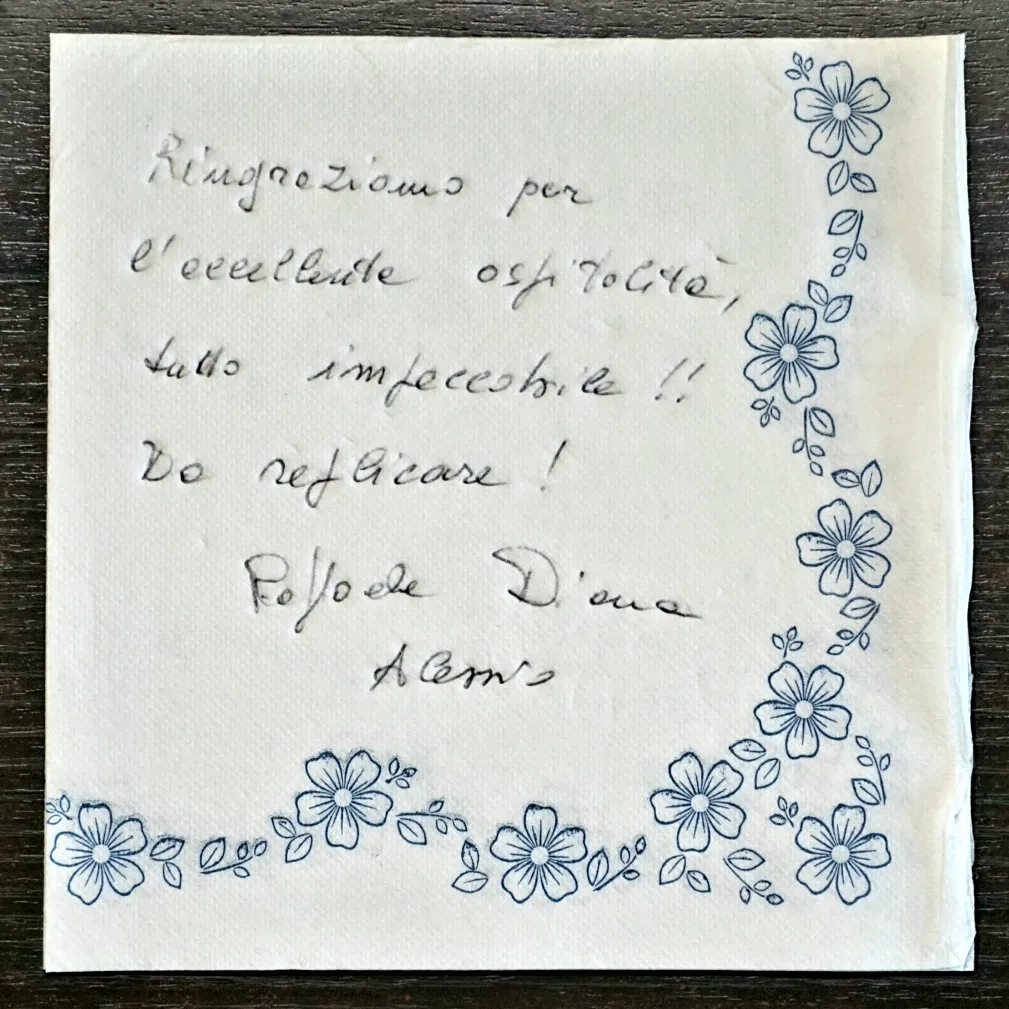 Ringraziamo per
l'eccellente ospitalità,
tutto impeccabile !!
Da replicare !
Raffaele Diana
Alessio